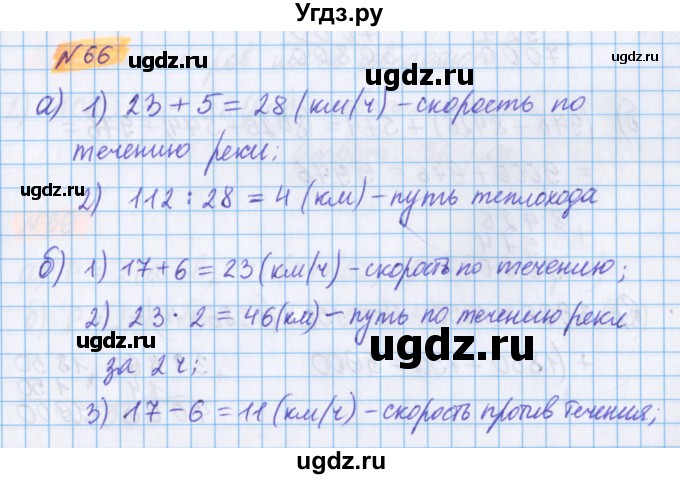 Угдз.ру
№ 66
а) 1) 23 + 5 = 28 (км/ч) – скорость по
течению реки;
2) 112 : 28 = 4 (км) – путь теплохода
б) 1) 17 + 6 = 23 (км/ч) – скорость по течению;
2) 23 · 2 = 46 (км) – путь по течению реки
за 2 ч;
3) 17 – 6 = 11 (км/ч) – скорость против течения;
ugdz.ru
ugdz.ru
ugdz.ru
ugdz.ru
ugdz.ru
ugdz.ru
ugdz.ru
ugdz.ru
ugdz.ru